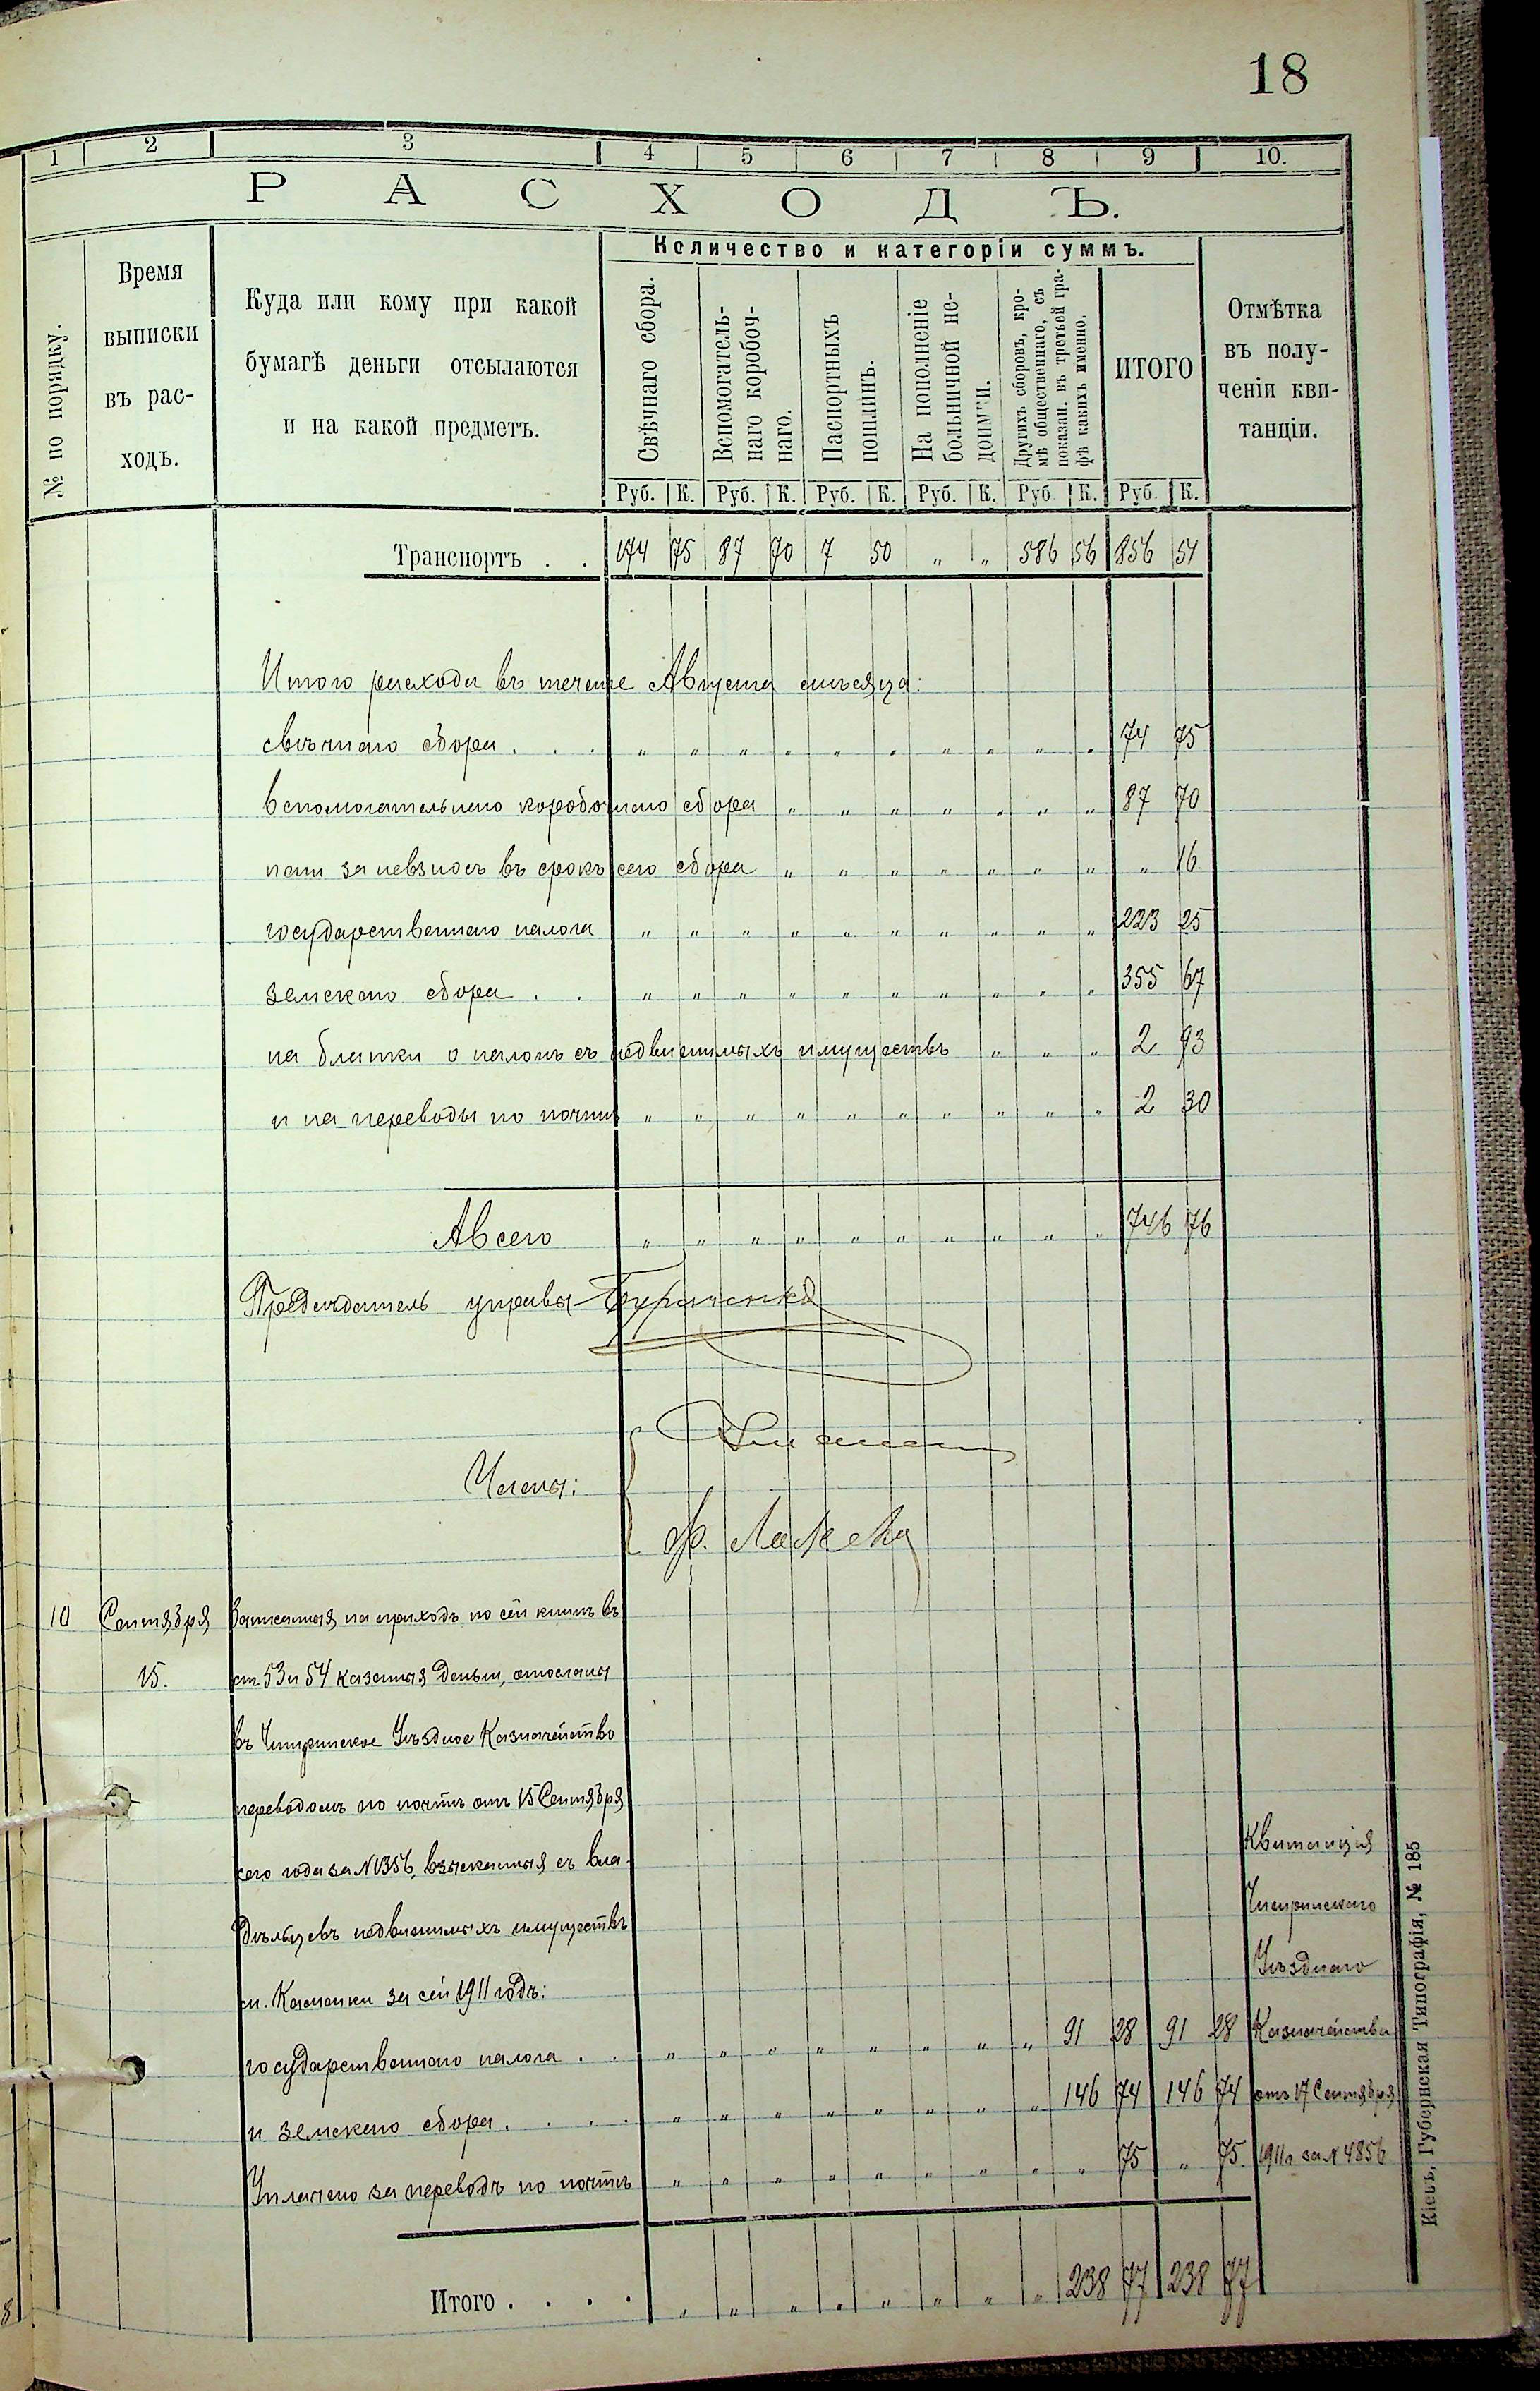 18
1 2 3 4 5 6 7 8 9 10.
РАСХОДЪ.
№ по порядку.
Время выписки въ рас-ходъ.
Куда или кому при какой
бумагѣ деньги отсылаются
и на какой предметъ.
Количество и категоріи суммъ.
Свѣчнаго сбора.
Вспомогатель-
наго коробоч-
наго.
Паспортныхъ
пошлинъ.
На пополненіе
больничной не-
доимки.
Другихъ сборовъ, кро-
мѣ общественнаго, съ
показан. въ третьей гра-
фѣ какихъ именно.
ИТОГО
Отмѣтка
въ полу-
ченіи кви-
танціи.
Руб. К. Руб. К. Руб. К. Руб. К. Руб. К. Руб. К.
Транспортъ . . 174 75 87 70 7 50 „ „ 586 56 856 51
Итого расхода въ теченіе Августа мѣсяца:
свѣчнаго сбора . . . „ „ „ „ „ „ „ „ „ „ 74 75
вспомогательнаго коробочнаго сбора „ „ „ „ „ „ „ 87 70
пени за невзносъ въ срокъ сего сбора „ „ „ „ „ „ „ „ 16
государственнаго налога „ „ „ „ „ „ „ „ „ „ 223 25
земскаго сбора . . „ „ „ „ „ „ „ „ „ „ 355 67
на бланки о налогѣ съ недвижимыхъ имуществъ „ „ „ 2 93
и на переводы по почтѣ „ „ „ „ „ „ „ „ „ „ 2 30
А всего „ „ „ „ „ „ „ „ „ „ 746 76
Предсѣдатель управы
Члены:
10 Сентября Записанныя на приходъ по сей книгѣ въ
15. ст. 53 и 54 казенныя деньги, отосланы
въ Чигиринское Уѣздное Казначейство
переводомъ по почтѣ отъ 15 Сентября
сего года за № 1356, взысканныя съ вла-
дѣльцевъ недвижимыхъ имуществъ
м. Каменки за сей 1911 годъ:
государственнаго налога . . „ „ „ „ „ „ „ „ 91 28 91 28
и земскаго сбора . . . . „ „ „ „ „ „ „ „ 146 74 146 74
Уплачено за переводъ по почтѣ „ „ „ „ „ „ „ „ „ 75 „ 75.
Квитанція
Чигиринскаго
Уѣзднаго
Казначейства
отъ 17 Сентября
1911 г за № 4856
Итого . . . . „ „ „ „ „ „ „ „ 238 77 238 77
Кіевъ, Губернская Типографія, № 185